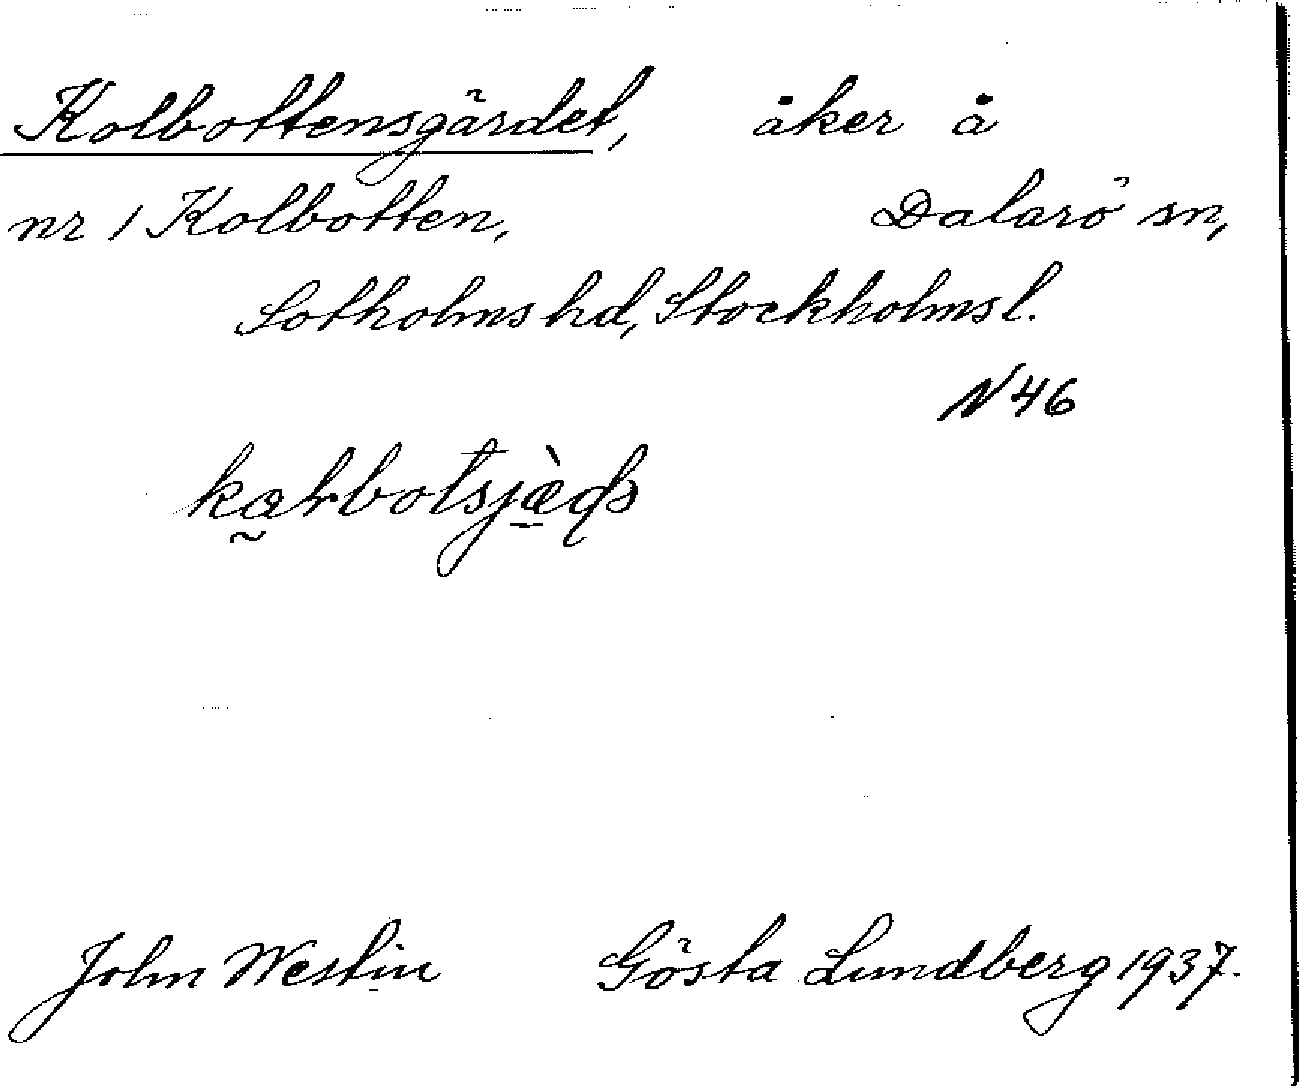 Kolbottensgärdet, åker å
nr 1 Kolbotten, Dalarö sn,
Sotholms hd, Stockholms l.
N 46
John Westin Gösta Lundberg 1937.